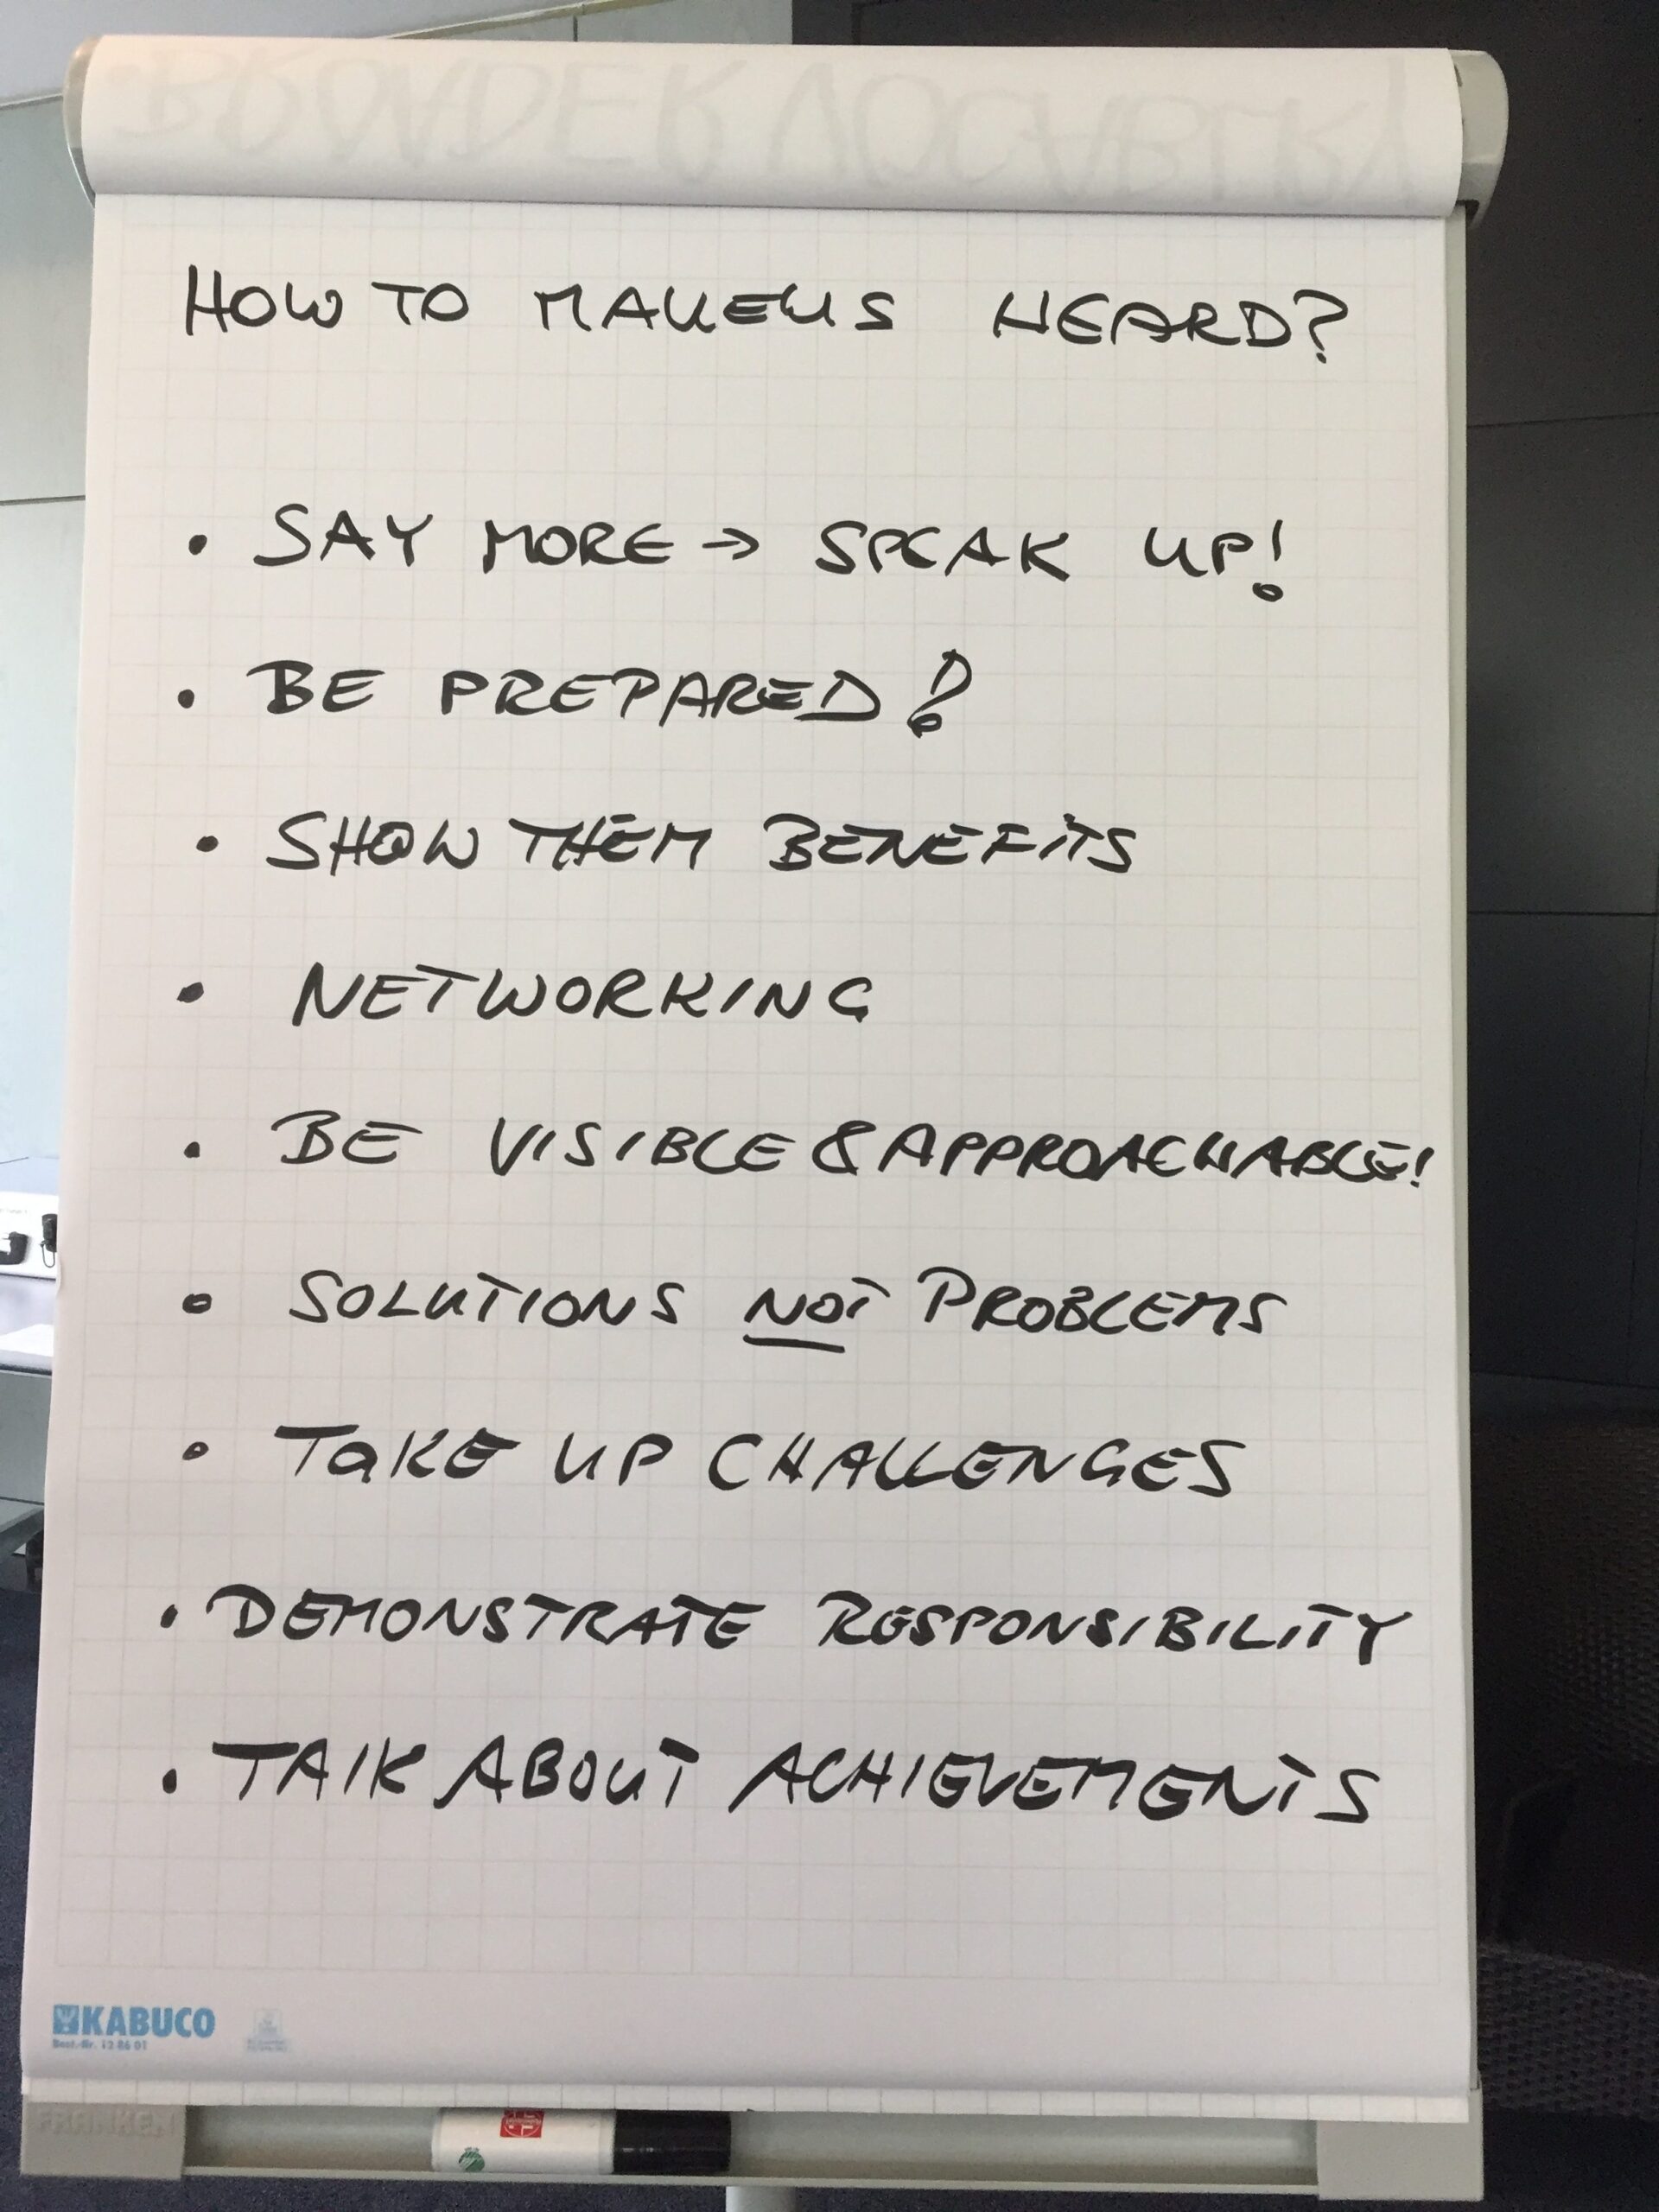 HOW TO MAKE US HEARD?
• SAY MORE → SPEAK UP!
• BE PREPARED!
• SHOW THEM BENEFITS
• NETWORKING
• BE VISIBLE & APPROACHABLE!
• SOLUTIONS NOT PROBLEMS
• TaKE UP CHALLENGES
• DEMONSTRATE RESPONSIBILITY
• TAlK ABOUT ACHIEVEMENTS
KABUCO
Best.-Nr. 12 86 01
FRANKEN